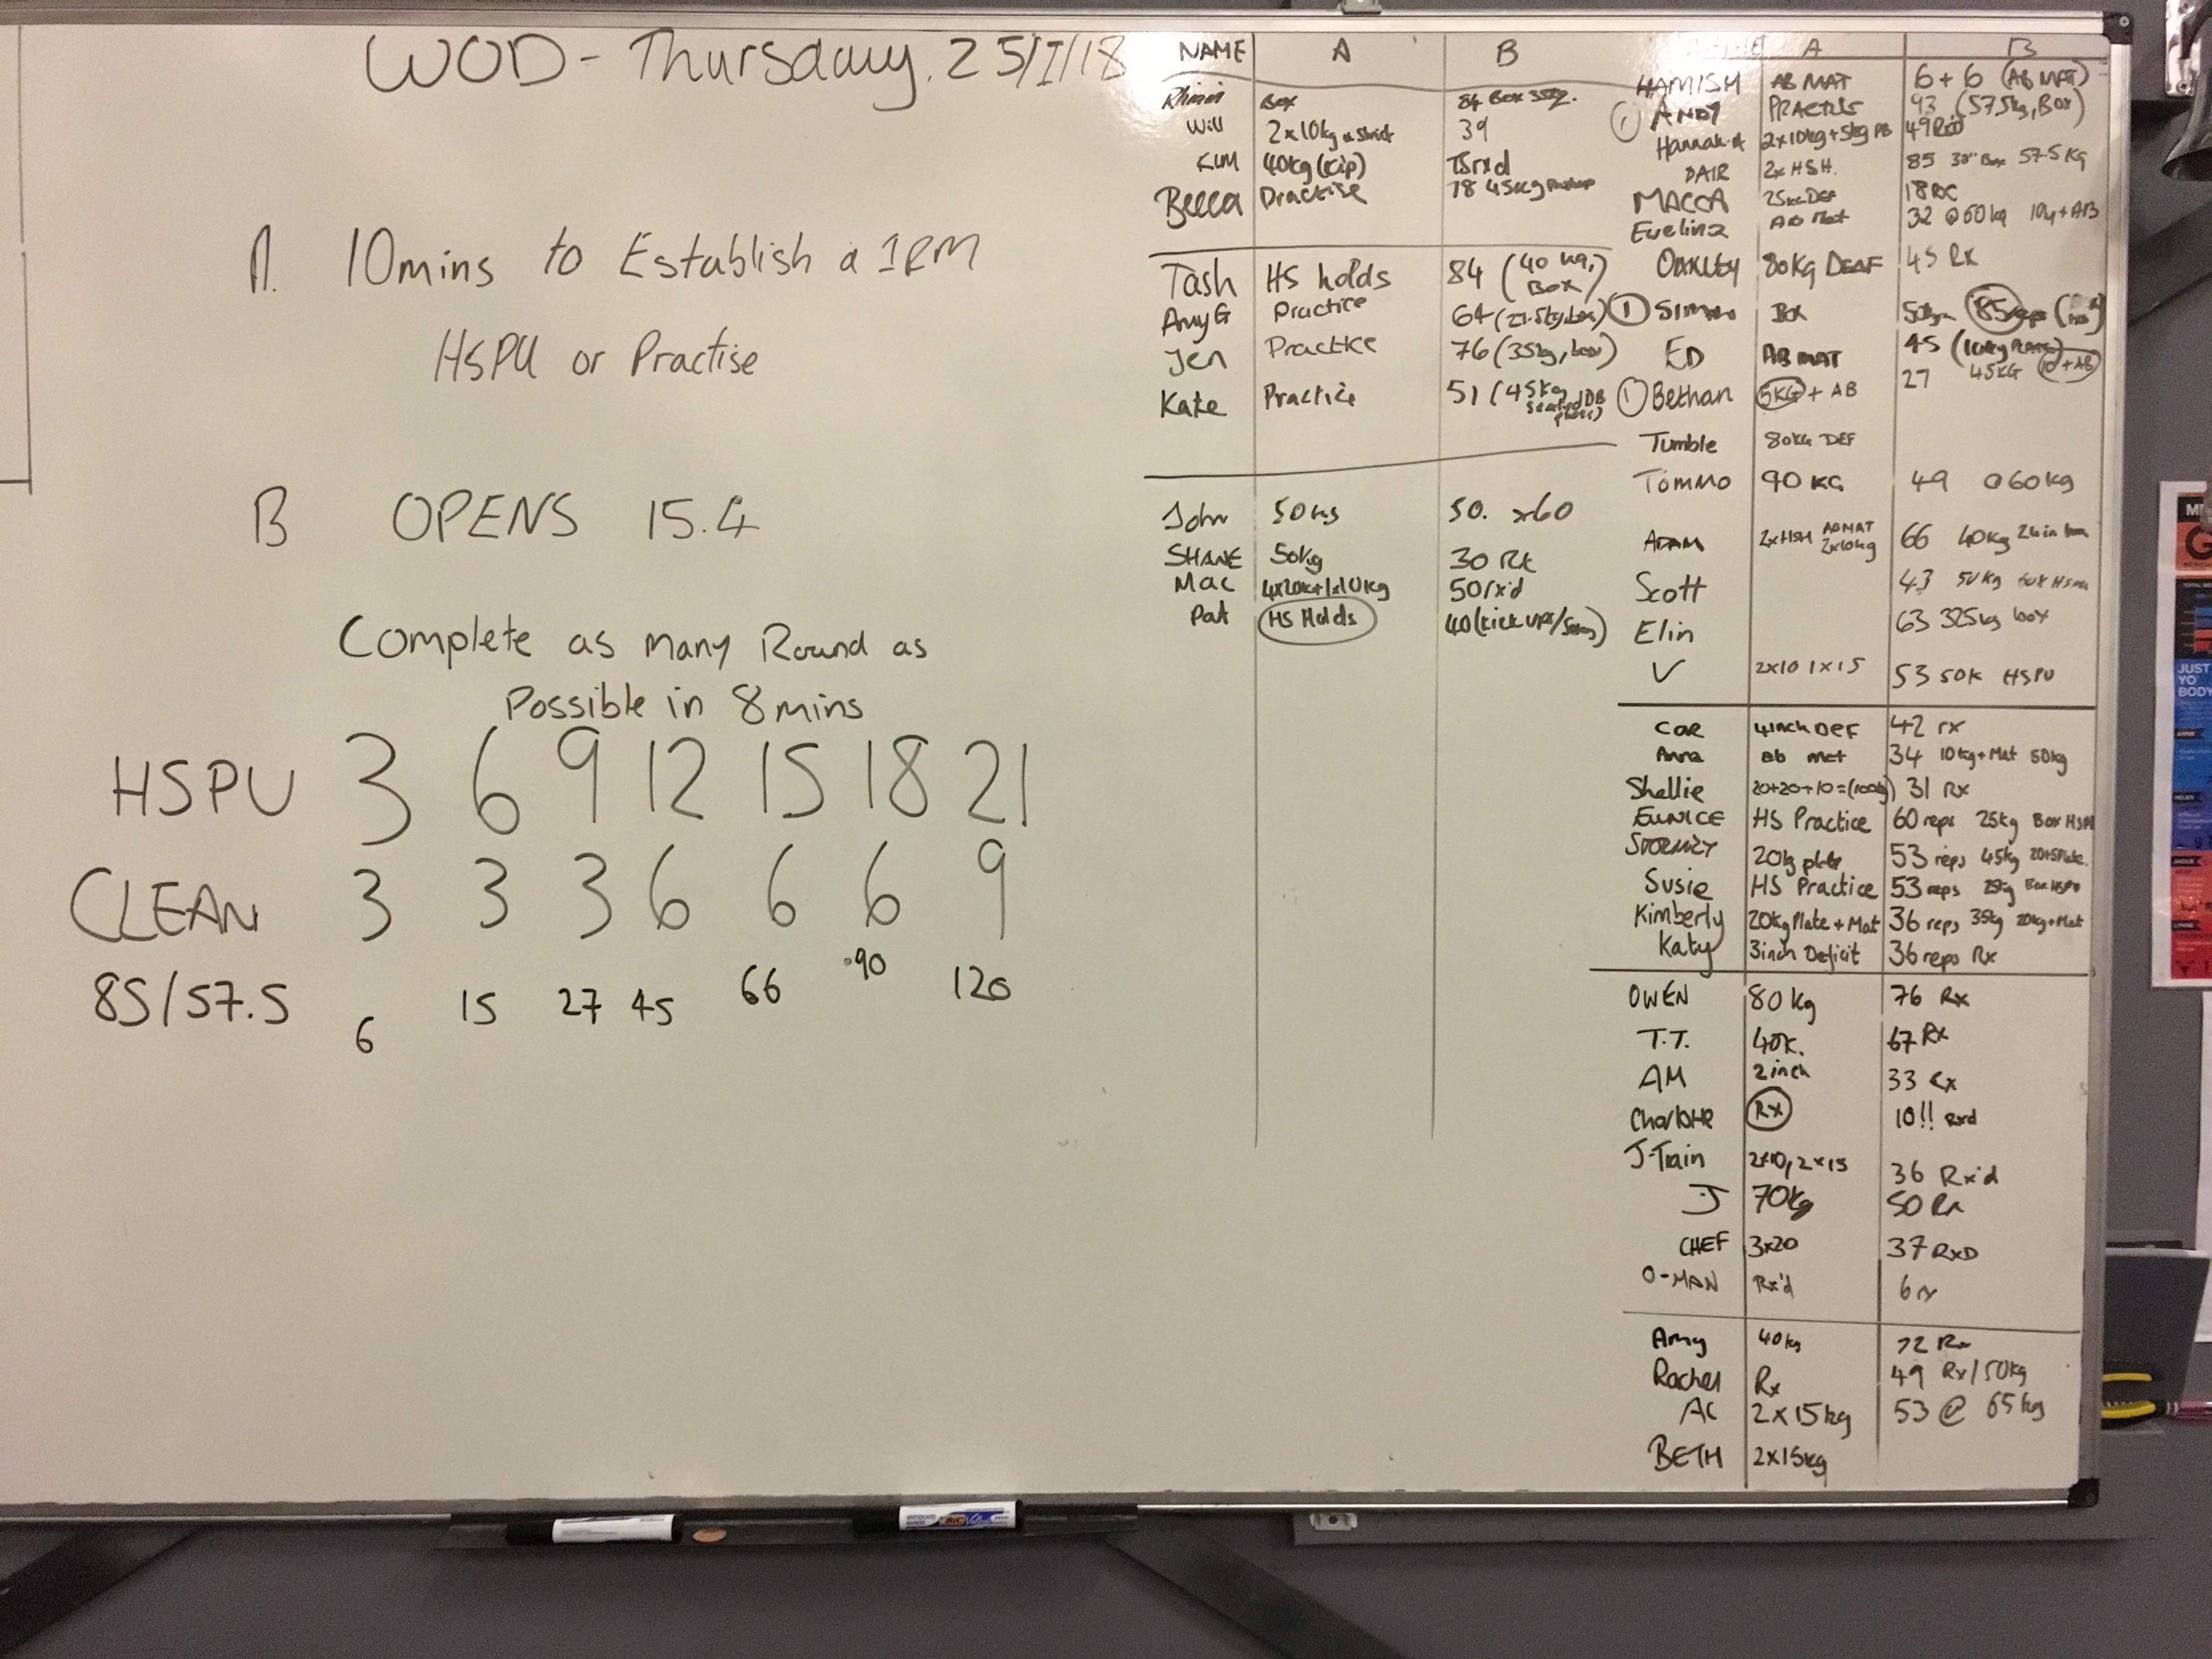 WOD - Thursday. 25/I/18
A. 10mins to Establish a 1RM
HSPU or Practise
B OPENS 15.4
Complete as many Round as
Possible in 8mins
HSPU 3 6 9 12 15 18 21
CLEAN 3 3 3 6 6 6 9
85/57.5 6 15 27 45 66 90 120
NAME A B
Box 84 Box
Will 2x10kg strict 39
KIM 40kg (kip)
Becca Practise 78 45kg
Tash HS holds 84 (40 kg, Box)
AmyG Practice 64
Jen Practice 76 (35kg, box)
Kate Practice 51 (45kg
John 50kg 50. x60
SHANE 50kg 30 Rx
Mac 4x20kg+1x10kg 50rx'd
Pat HS Holds 40 (kick ups/
A B
HAMISH AB MAT 6+6 (AB MAT)
1 ANDY PRACTISE 93 (57.5kg, Box)
Hannah.A 2x10kg+5kg PB 49 Rxd
DAIR 2x HSH. 85 30" Box 57.5 KG
MACCA 25kg DEF 18 RX
Evelina AB Mat 32 @60kg 10kg+AB
OAKLEY 80KG DEAF 45 Rx
1 Simmo Box 50kg 85reps
ED AB MAT 45 (10kg PLATE)
1 Bethan 5KG + AB 27 45KG 10+AB
Tumble 80KG DEF
TOMMO 90 KG 49 @60kg
ADAM 2xHSH ABMAT 2x10kg 66 40kg 24in box
Scott 43 50kg box HSPU
Elin 63 32.5kg box
V 2x10 1x15 53 50K HSPU
COR 4inch DEF 42 rx
Anna ab mat 34 10kg+Mat 50kg
Shellie 20+20+10= 31 Rx
EUNICE HS Practice 60 reps 25kg Box HSPU
20kg plate 53 reps 45kg 20+5Plate.
Susie HS Practice 53 reps Box HSPU
Kimberly 20kg Plate + Mat 36 reps 35kg 20kg+Mat
Katy 3inch Deficit 36 reps Rx
OWEN 80 kg 76 Rx
T.T. 40K. 67 Rx
AM 2 inch 33 Rx
Charlotte Rx 10!! Rxd
J-Train 2x10, 2x15 36 Rx'd
J 70kg 50 Rx
CHEF 3x20 37 RXD
O-MAN Rx'd 6 rx
Amy 40kg 72 Rx
Rachel Rx 49 Rx/50kg
AC 2x15kg 53 @ 65kg
BETH 2x15kg
JUST
YO
BODY